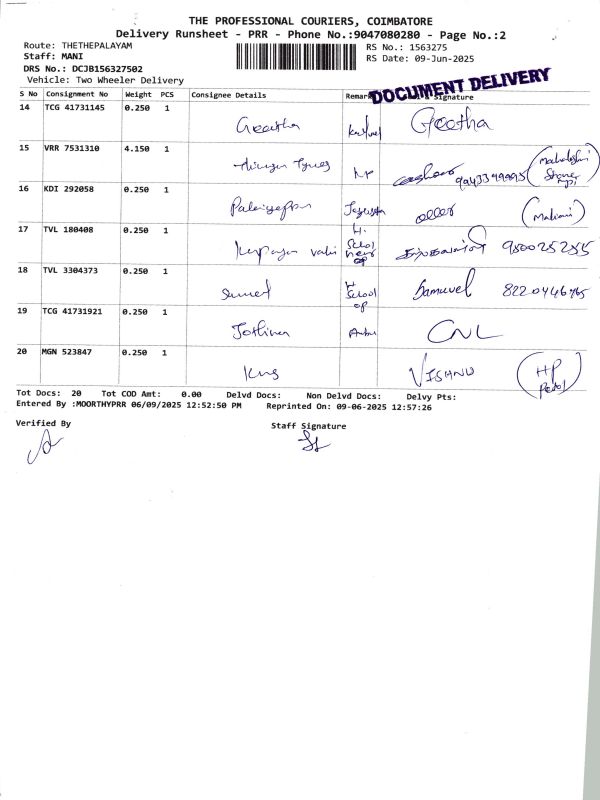 THE PROFESSIONAL COURIERS, COIMBATORE
Delivery Runsheet - PRR - Phone No.:9047080280 - Page No.:2
Route: THETHEPALAYAM
Staff: MANI
DRS No.: DCJB156327502
Vehicle: Two Wheeler Delivery
RS No.: 1563275
RS Date: 09-Jun-2025
DOCUMENT DELIVERY
S No Consignment No Weight PCS Consignee Details Remark Signature
14 TCG 41731145 0.250 1 Geetha Geetha
15 VRR 7531310 4.150 1
16 KDI 292058 0.250 1
17 TVL 180408 0.250 1 9500252255
18 TVL 3304373 0.250 1 School Samuvel 8220446765
19 TCG 41731921 0.250 1 CNL
20 MGN 523847 0.250 1 King VISHNU (HP Petrol)
Tot Docs: 20 Tot COD Amt: 0.00 Delvd Docs: Non Delvd Docs: Delvy Pts:
Entered By :MOORTHYPRR 06/09/2025 12:52:50 PM Reprinted On: 09-06-2025 12:57:26
Verified By Staff Signature